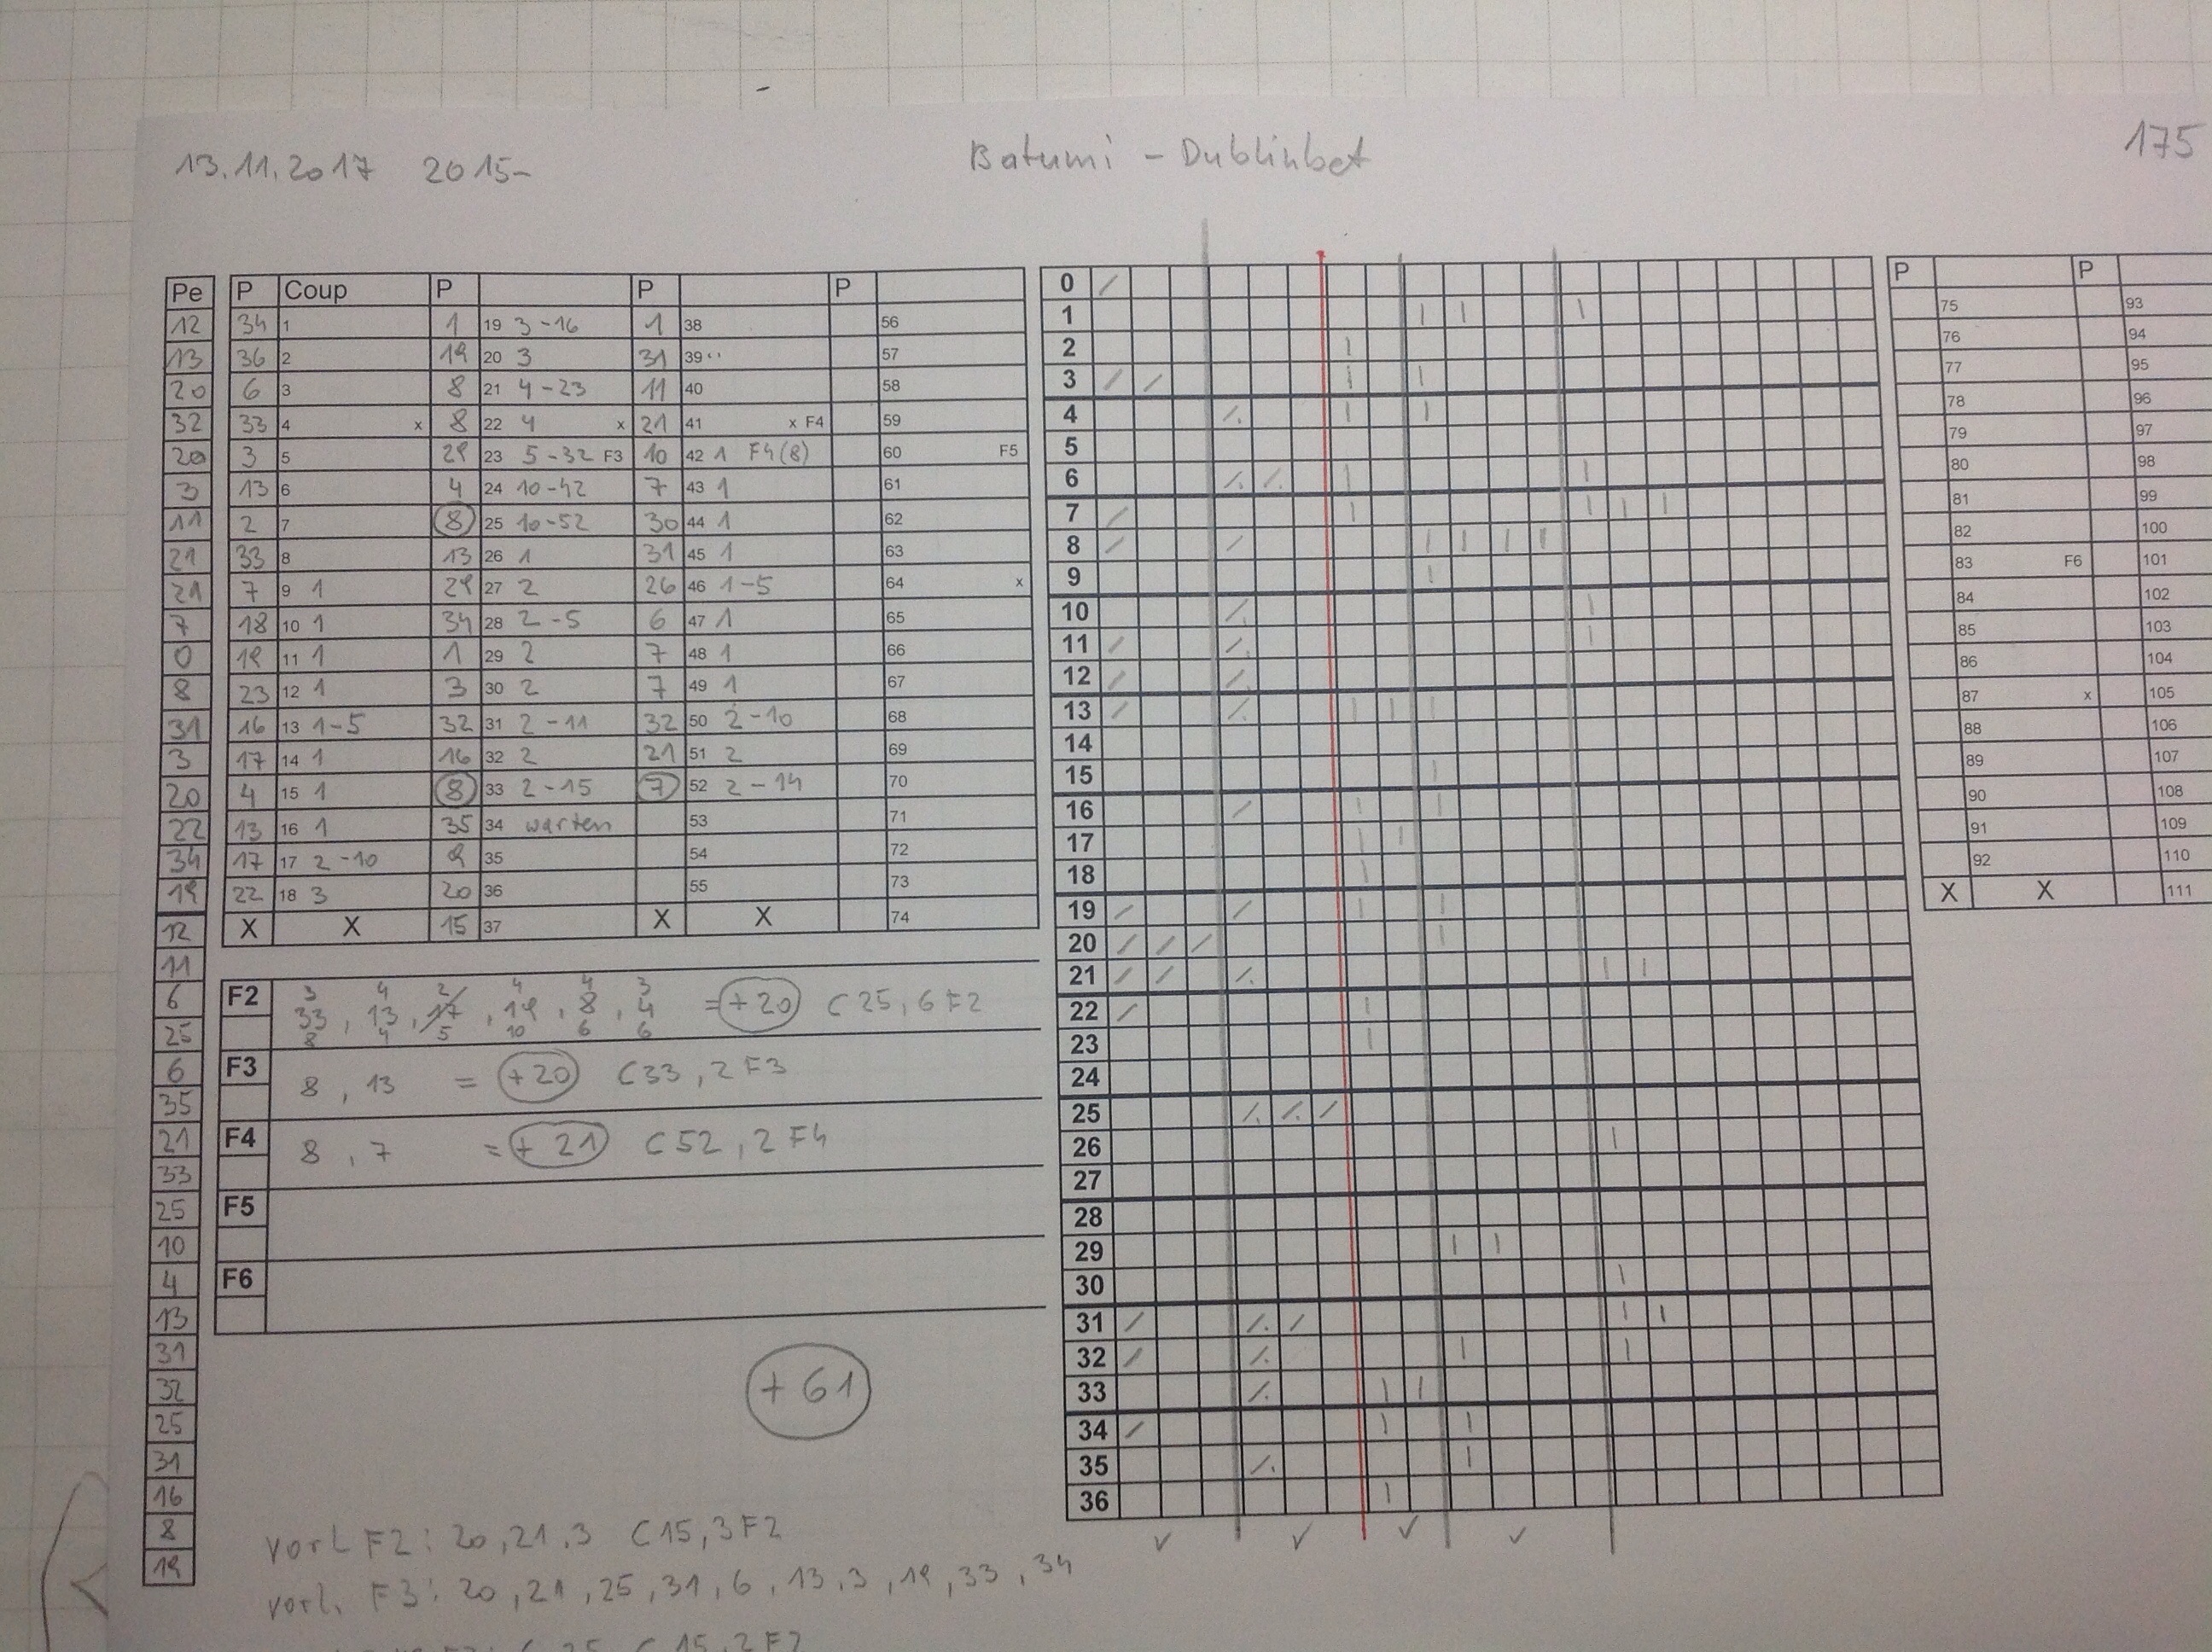 13.11.2017 2015- Batumi - Dublinbet 175
Pe P Coup P P P
12 34 1 1 19 3-16 1 38 56
13 36 2 19 20 3 31 39 57
20 6 3 8 21 4-23 11 40 58
32 33 4 x 8 22 4 x 21 41 x F4 59
20 3 5 29 23 5-32 F3 10 42 1 F4(8) 60 F5
3 13 6 4 24 10-42 7 43 1 61
11 2 7 8 25 10-52 30 44 1 62
21 33 8 13 26 1 31 45 1 63
21 7 9 1 29 27 2 26 46 1-5 64 x
7 18 10 1 34 28 2-5 6 47 1 65
0 19 11 1 1 29 2 7 48 1 66
8 23 12 1 3 30 2 7 49 1 67
31 16 13 1-5 32 31 2-11 32 50 2-10 68
3 17 14 1 16 32 2 21 51 2 69
20 4 15 1 8 33 2-15 7 52 2-14 70
22 13 16 1 35 34 warten 53 71
34 17 17 2-10 9 35 54 72
19 22 18 3 20 36 55 73
12 X X 15 37 X X 74
11
6
25
6
35
21
33
25
10
4
13
31
32
25
31
16
8
19
3 4 2 4 4 3
F2 33, 13, 17, 19, 8, 4 = +20 C25, 6F2
8 4 5 10 6 6
F3 8, 13 = +20 C33, 2F3
F4 8, 7 = +21 C52, 2F4
F5
F6
+61
vorl F2: 20, 21, 3 C15, 3F2
vorl. F3: 20, 21, 25, 31, 6, 13, 3, 19, 33, 34
0
1
2
3
4
5
6
7
8
9
10
11
12
13
14
15
16
17
18
19
20
21
22
23
24
25
26
27
28
29
30
31
32
33
34
35
36
P P
75 93
76 94
77 95
78 96
79 97
80 98
81 99
82 100
83 F6 101
84 102
85 103
86 104
87 x 105
88 106
89 107
90 108
91 109
92 110
X X 111